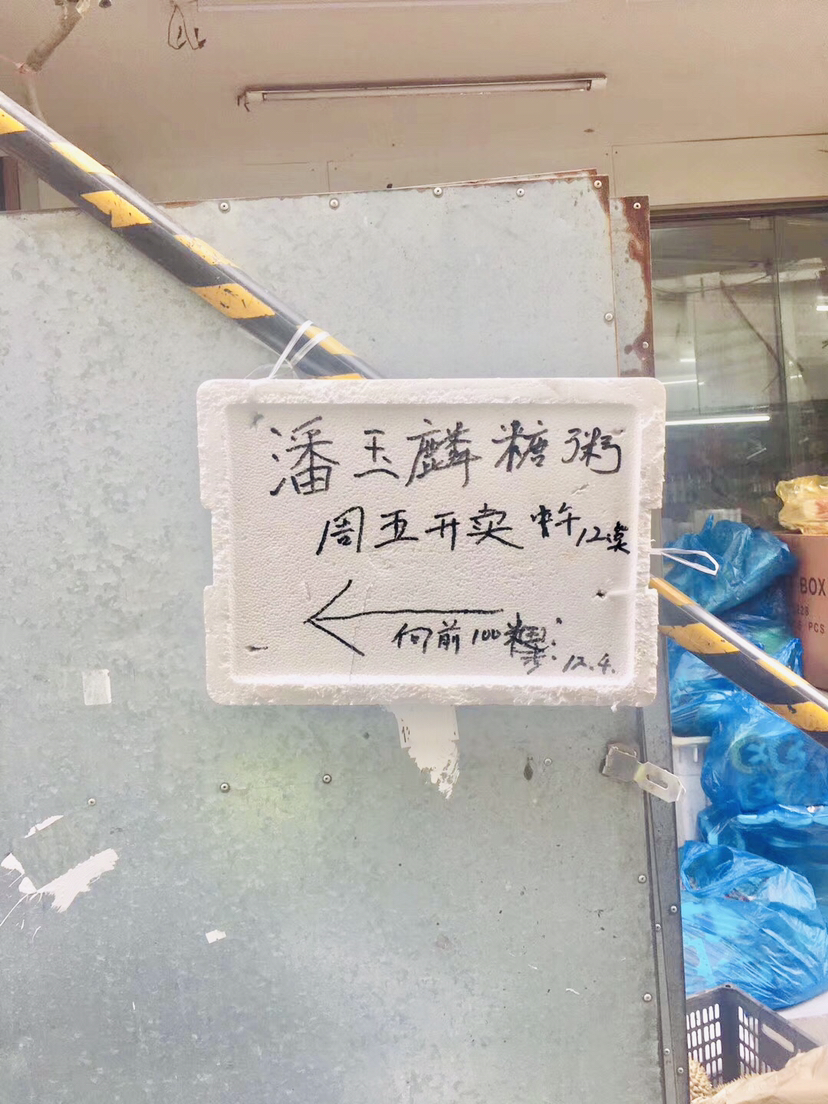 潘玉麟糖粥
周五开卖 中午12点
向前100米
12.4.
BOX
PCS